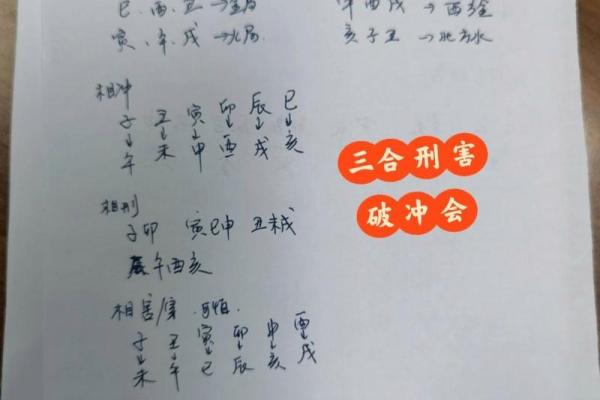 巳.酉.丑→金局
申酉戌→西金
寅.午.戌→火局
亥子丑→北方水
相冲
子 丑 寅 卯 辰 巳
↓ ↓ ↓ ↓ ↓ ↓
午 未 申 酉 戌 亥
三合刑害
破冲会
相刑
子卯 寅巳申 丑未戌
午酉亥
相害/穿
子 丑 寅 卯 申 酉
↓ ↓ ↓ ↓ ↓ ↓
未 午 巳 辰 亥 戌